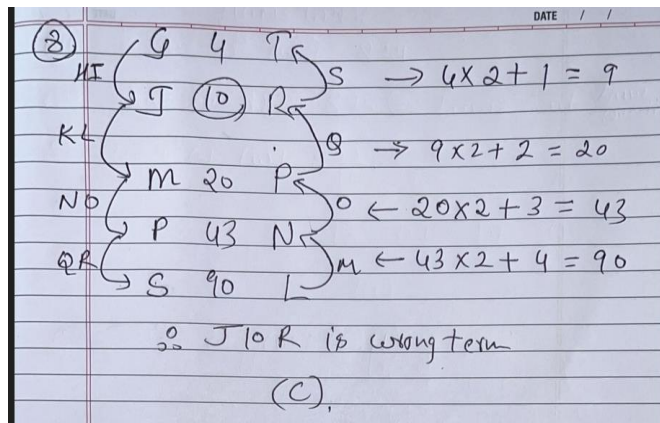 DATE / /
8 G 4 T
HI S → 4×2+1 = 9
J 10 R
KL Q → 9×2+2 = 20
M 20 P
NO O ← 20×2+3 = 43
P 43 N
QR M ← 43×2+4 = 90
S 90 L
∴ J10R is wrong term
(C).